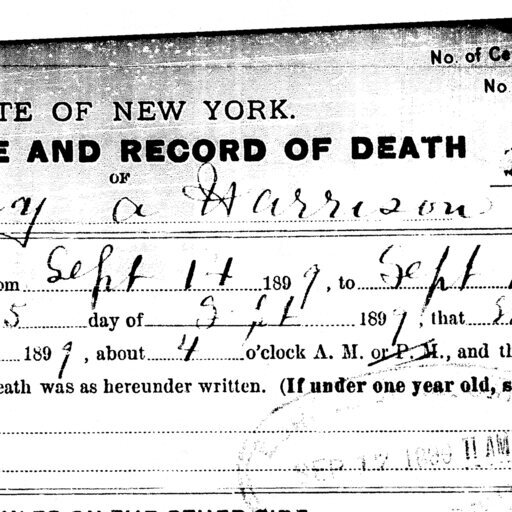 No. of Ce
No
TE OF NEW YORK.
E AND RECORD OF DEATH
OF
y a Harrison
om Sept 1 1899, to Sept
5 day of Sept 1899, that
1899, about 4 o'clock A. M. or P. M., and th
eath was as hereunder written. (If under one year old, s
SEP 12 1899 11 AM